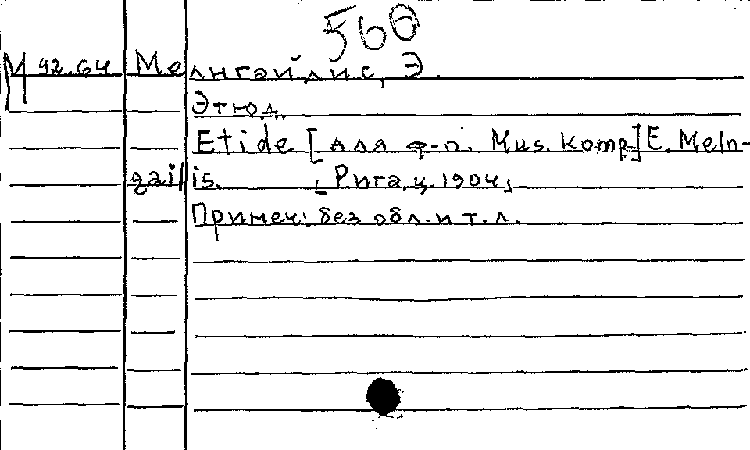 566
М 92.64 Мелнгайлис, Э.
Этюд.
Etide [для ф-п. Mus. komp] E. Meln-
gailis. [Рига, ц. 1904]
Примеч: без обл. и т. л.